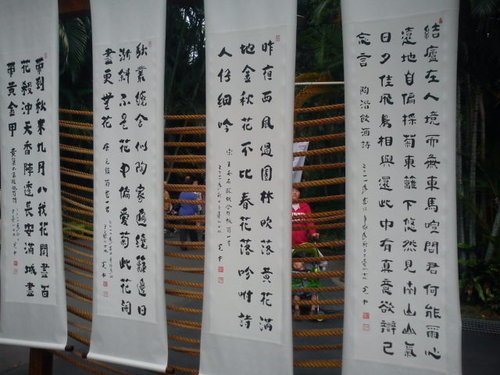 結廬在人境而無車馬喧問君何能爾心
遠地自偏採菊東籬下悠然見南山山氣
日夕佳飛鳥相與還此中有真意欲辯已
忘言 飲酒詩
昨夜西風過園林吹落黃花滿
地金秋花不比春花落 詩
人仔細吟
秋叢繞舍似陶家遍繞籬邊日
漸斜不是花中偏愛菊此花開
盡更無花
待到秋來九月八我花開盡百
花殺沖天香陣透長安滿城盡
帶黃金甲